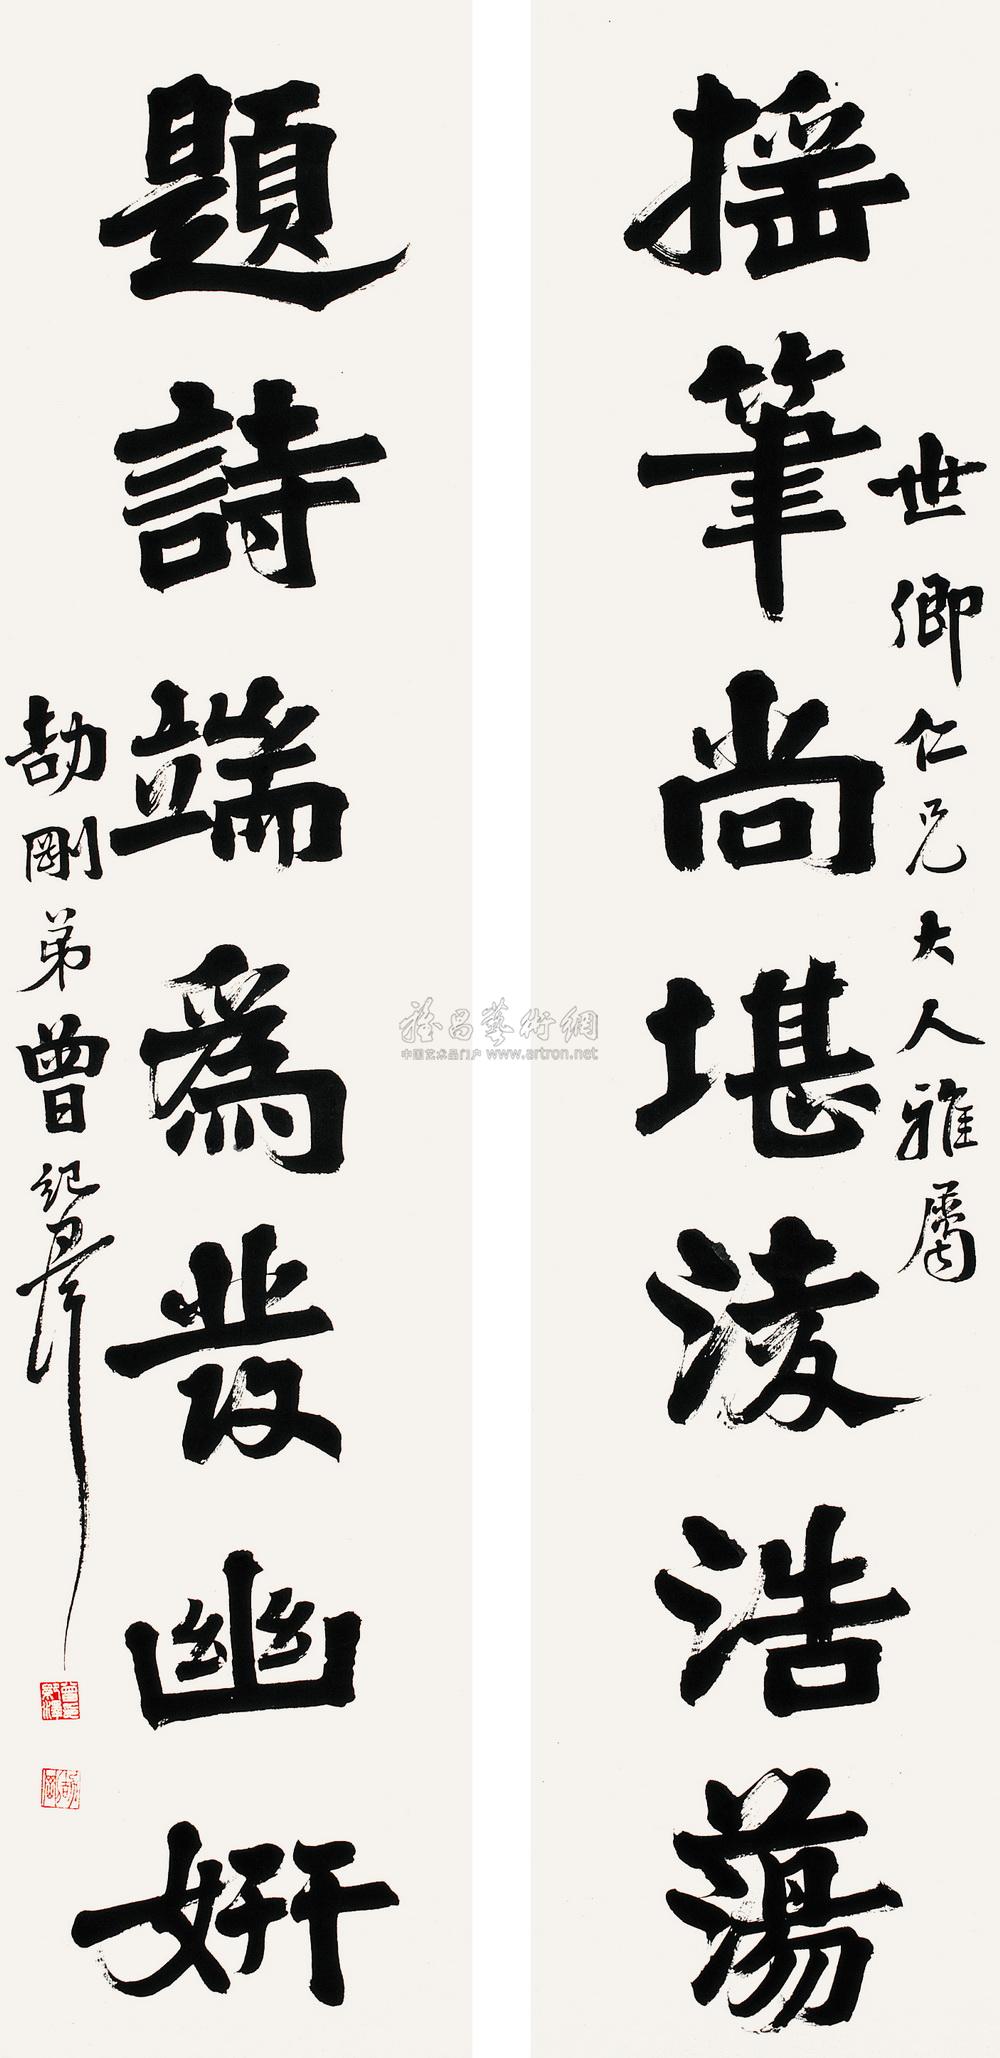 世卿仁兄大人雅屬
搖筆尚堪淩浩蕩
題詩端爲發幽妍
劼剛弟曾紀澤
雅昌藝術網
中国艺术品门户 www.artron.net